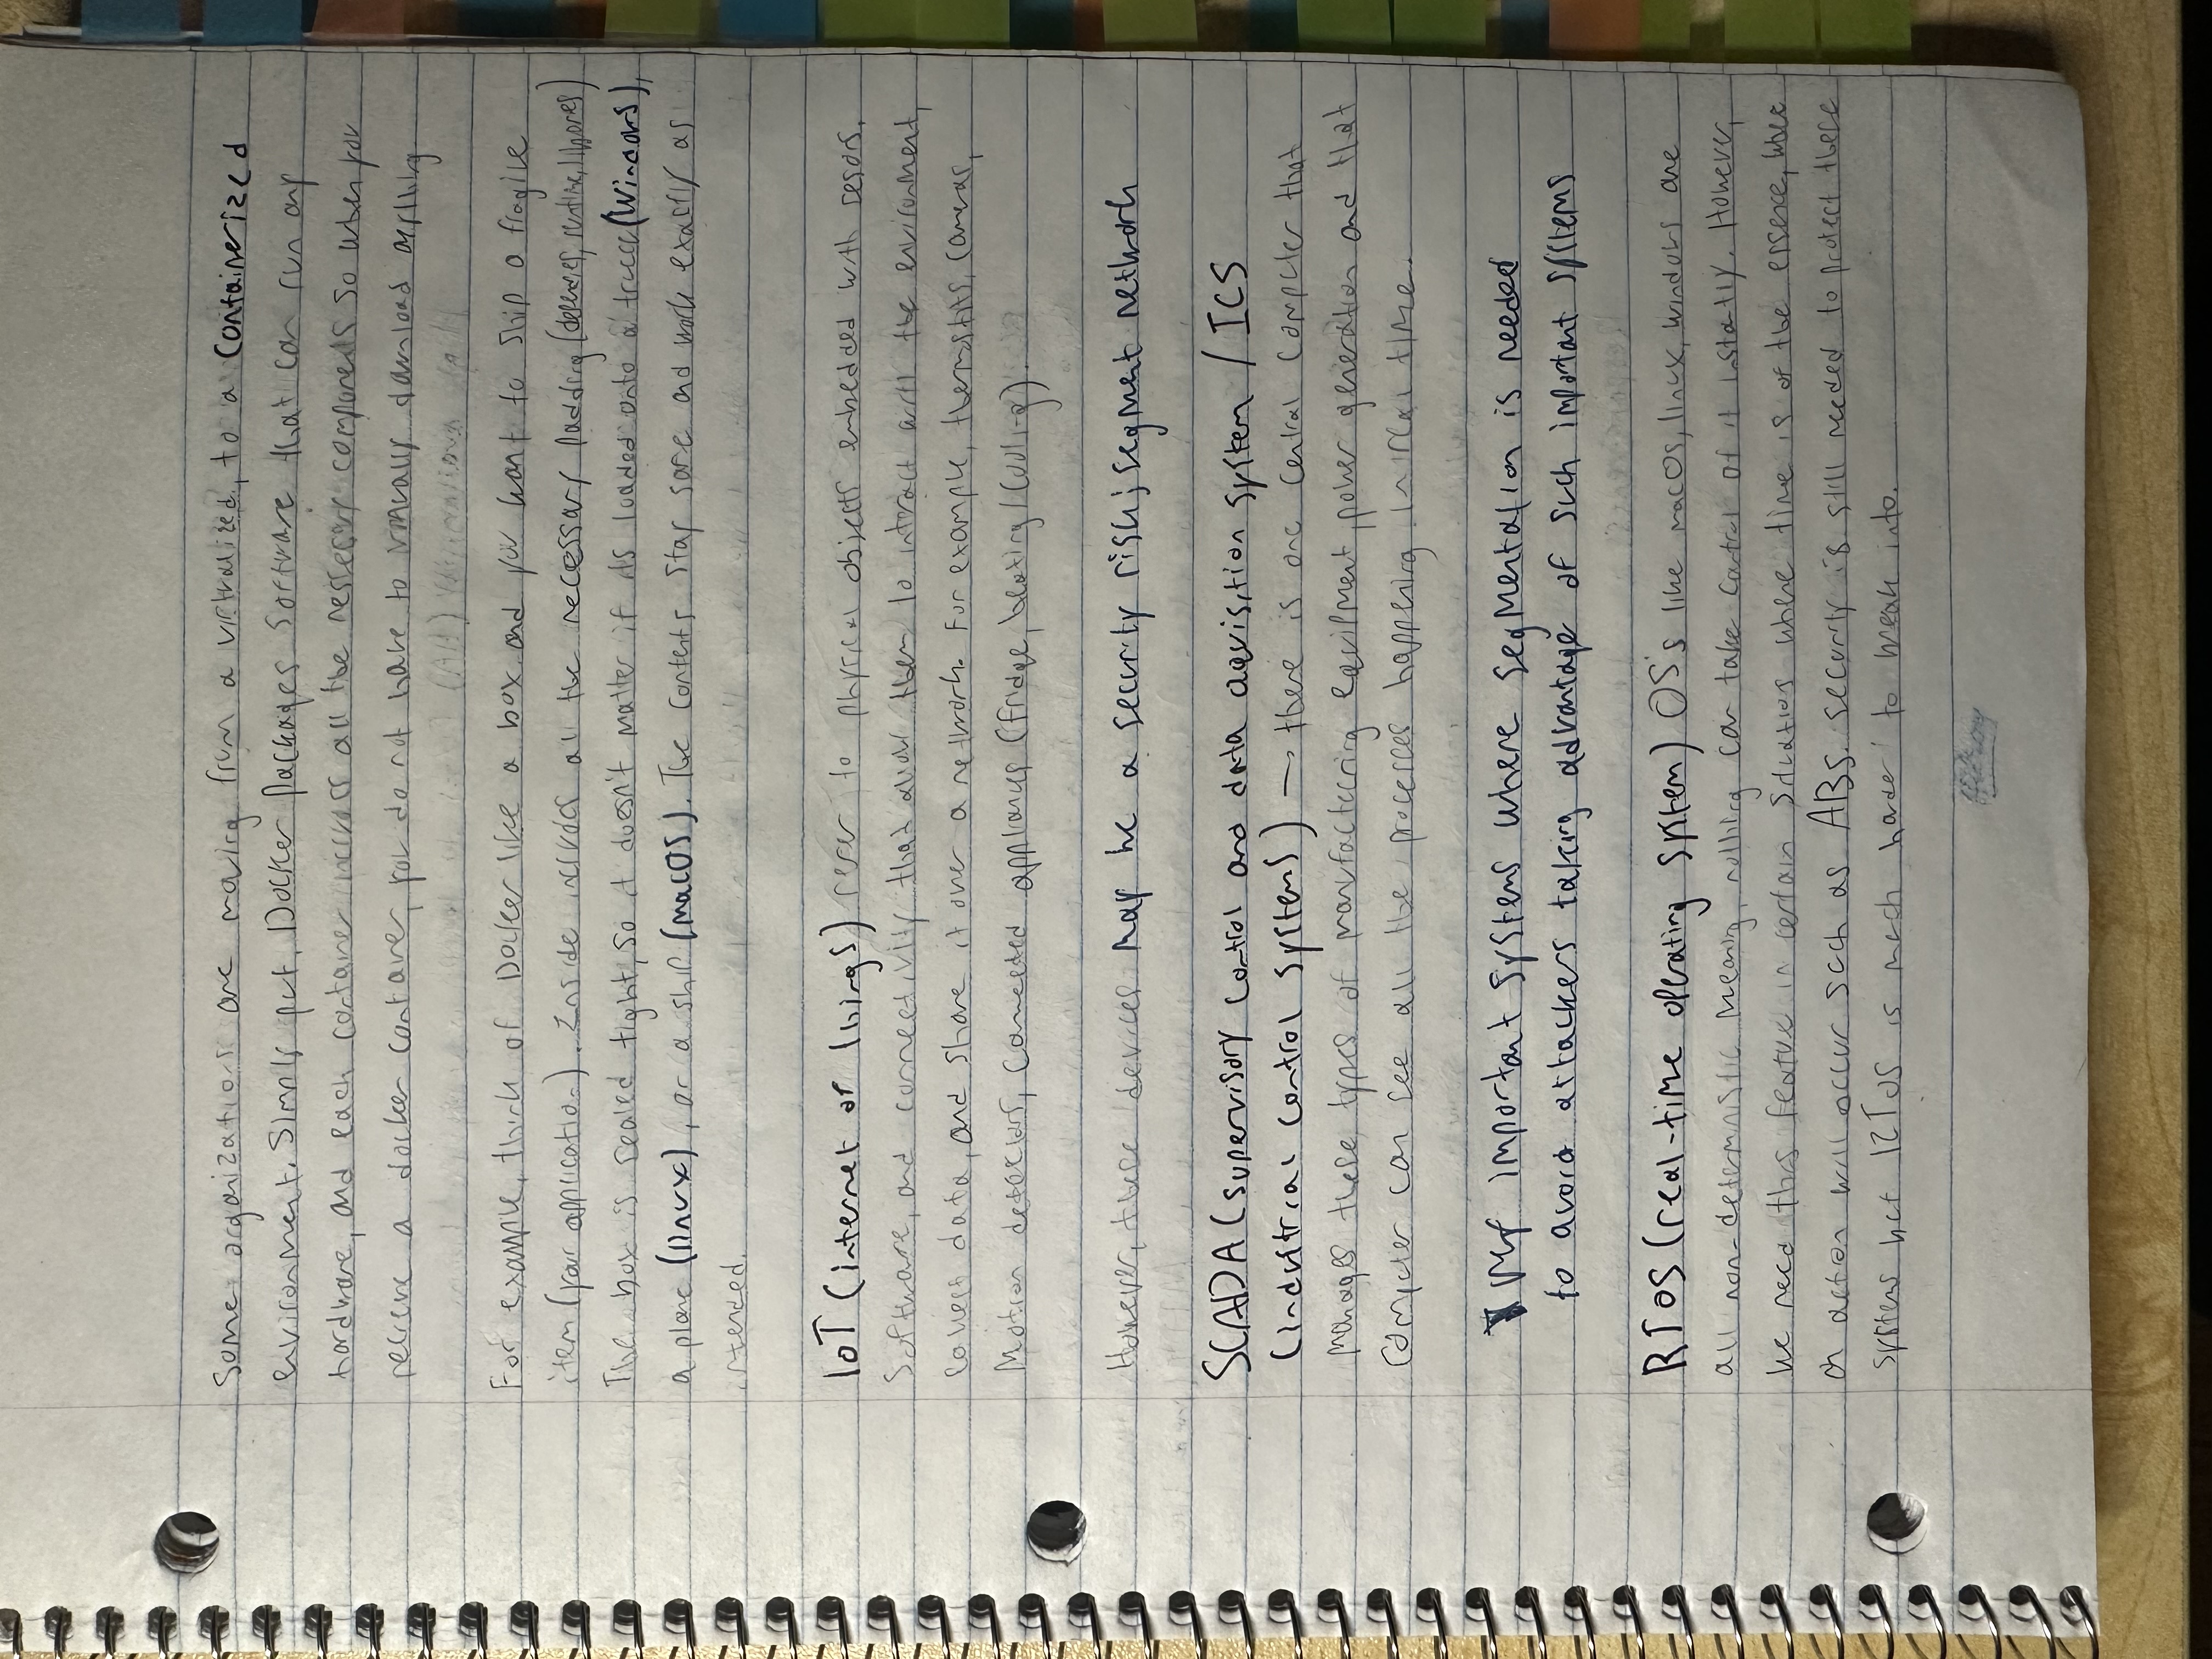 Some organizations are moving from a virtualized, to a containerized
environment. Simply put, Docker packages software that can run any
hardware, and each container includes all the nessecary components so when you
recieve a docker container, you do not have to manually download anything
For example, think of Docker like a box and you want to ship a fragile
item (your application). Inside includes all the necessary padding (depencies, runtime, libraries)
The box is sealed tight, so it doesn't matter if its loaded onto a truck (Windows),
a plane (linux), or a ship (macOS). The contents stay safe and work exactly as
intended.
IoT (internet of things) refer to physical objects embedded with sesors,
software, and connectivity that allow them to interact with the environment,
collect data, and share it over a network. For example, thermostats, cameras,
Motion detectors, connected appliances (fridge, heating/cooling).
However, these devices may be a security risk; segment network
SCADA (supervisory control and data aquisition system / ICS
(industrial control systems) → there is one central computer that
manages these types of manufactering equipment, power generation and that
computer can see all the processes happening in real time.
Very important systems where segmentation is needed
to avoid attackers taking advantage of such important systems
RTOS (real-time operating system) OS's like macOS, linux, windows are
all non-deterministic meaning, nothing can take control of it instantly. However,
we need this feature in certain situations where time is of the essence, where
an action will occur such as ABS. security is still needed to protect these
systems but RTOS is much harder to break into.